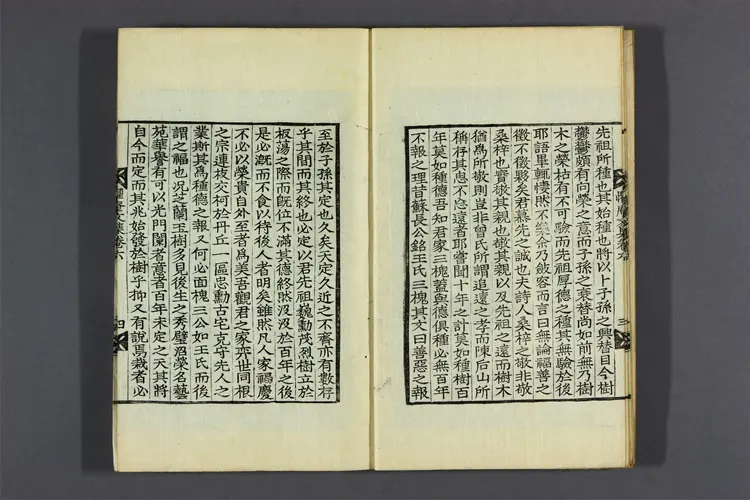 先祖所種也其始種也將以卜子孫之興替目今樹
欝欝頗有向榮之意而子孫之衰替尚如前無乃樹
木之榮枯有不可驗而先祖厚德之種其無驗於後
耶語畢輒悽然不樂余乃斂容而言曰無論福善之
徵不徵夥矣君慕先之誠也夫詩人桑梓之敬非敬
桑梓也實敬其親也敬其親以及先祖之遠而樹木
猶爲所敬則豈非曾氏所謂追遠之孝而陳后山所
稱存其思不忘遠者耶嘗聞十年之計莫如種樹百
年莫如種德吾知君家三槐蓋與德俱種必無百年
不報之理昔蘇長公銘王氏三槐其文曰善惡之報
三
至於子孫其定也久矣天定久近之不齊亦有數存
乎其間而其終也必定以君先祖巍勳茂烈樹立於
板蕩之際而旣位不滿其德終然汲汲於百年之後
是必旣而不食以待後人者明矣雖然凡人家福慶
不必以榮貴自外至者爲美吾觀君之家奕世同根
之宗連枝交柯於丹丘一區忠勳古宅克守先人之
業斯其爲種德之報又何必面槐三公如王氏而後
謂之福也况芝蘭玉樹多見後生之秀璧沼榮名藝
苑華譽有可以光門闌者意者百年未定之天其將
自今而定而其兆始發於樹乎抑又有說焉栽者必
卷六
四